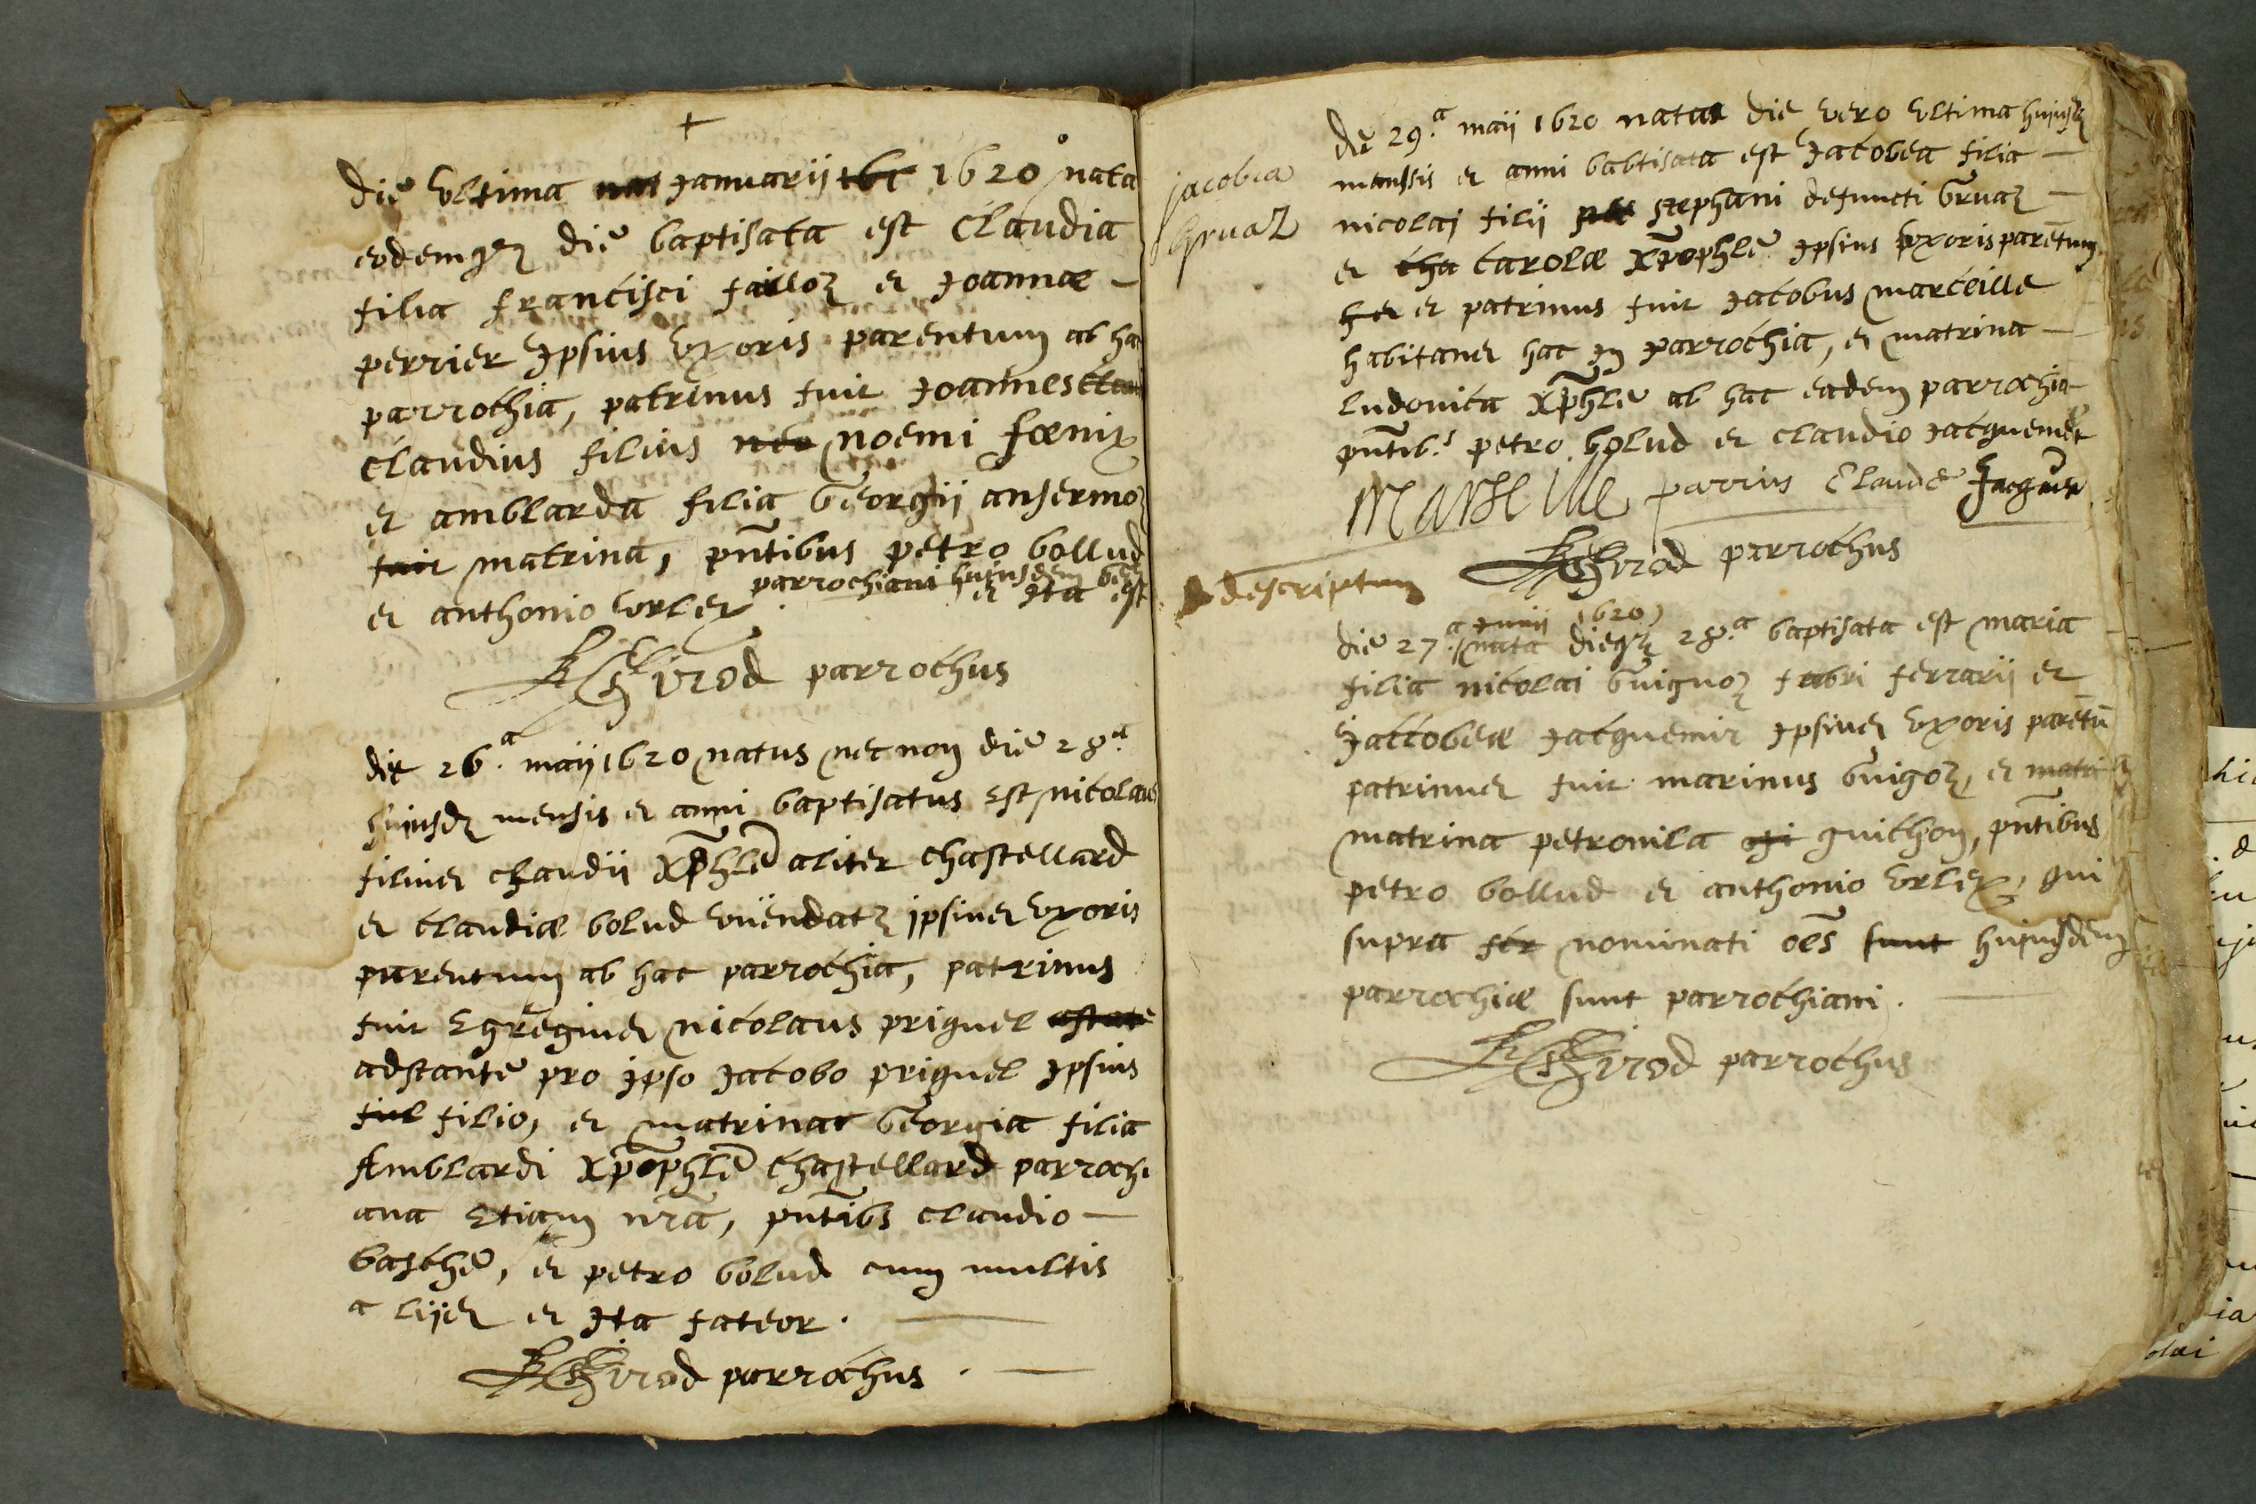 +
die ultima nat Januarij 161 1620° nata
eodemq3 die baptisata est Claudia
filia francisci failloz et Joannæ —
perrier Ipsius Uxoris parentum ab hac
parrochia, patrinus fuit Joannes Clau
claudius filius neo noemi fœnix
et amblarda filia Georgij ansermoz
fuit matrina, pñtibus petro bollud
parrochiani hujusdem
et anthonio Urlex et Ita est
Girod parrochus
die 26.ª maij 1620 natus nec non die 28ª
hujusd3 mensis et anni baptisatus Est nicolaus
filius claudii Xp̄hle aliter chastellard
et claudiæ bolud ipsius Uxoris
parentum ab hac parrochia, patrinus
fuit Egregius nicolaus priguel astate
adstante pro Ipso Jacobo priguel Ipsius
fiul filio, et matrina Georgia filia
Amblardi Xp̄ophle chastellard parrochi
ana Etiam nr̄a, pñtibs claudio —
basthe, et petro bolud cum multis
alijs et Ita fateor. —
Girod parrochus . —
jacobea
Gruaz
die 29.ª maij 1620 nata die vero Ultima hujusd3
menssis et anni babtisata est Jacobea filia —
nicolaj filij stephani defuncti Gruaz —
et cha carolæ Xp̄ophle Ipsius Uxoris parētum
het et patrinus fuit Jacobus marceille
habitans hac In parrochia, et matrina —
ludovica Xp̄hle ab hac eadem parrochia
pñtib.s petro bolud et claudio Jacquemet
Marseille parrius Claude Jaquem
Girod parrochus
descriptum
Junij 1620
die 27.ª nata dieq3 28.ª baptisata est maria
filia nicolai Guiguoz fabri ferrarij et
Jaccobeæ Jacquemir Ipsius Uxoris parētū
patrinus fuit marinus Guigoz, et matri
matrina petronila gi guichon, pñtibus
petro bollud et anthonio Urlex, qui
supra fer nominati oēs sunt hujusdem
parrochiæ sunt parrochiani . —
Girod parrochus